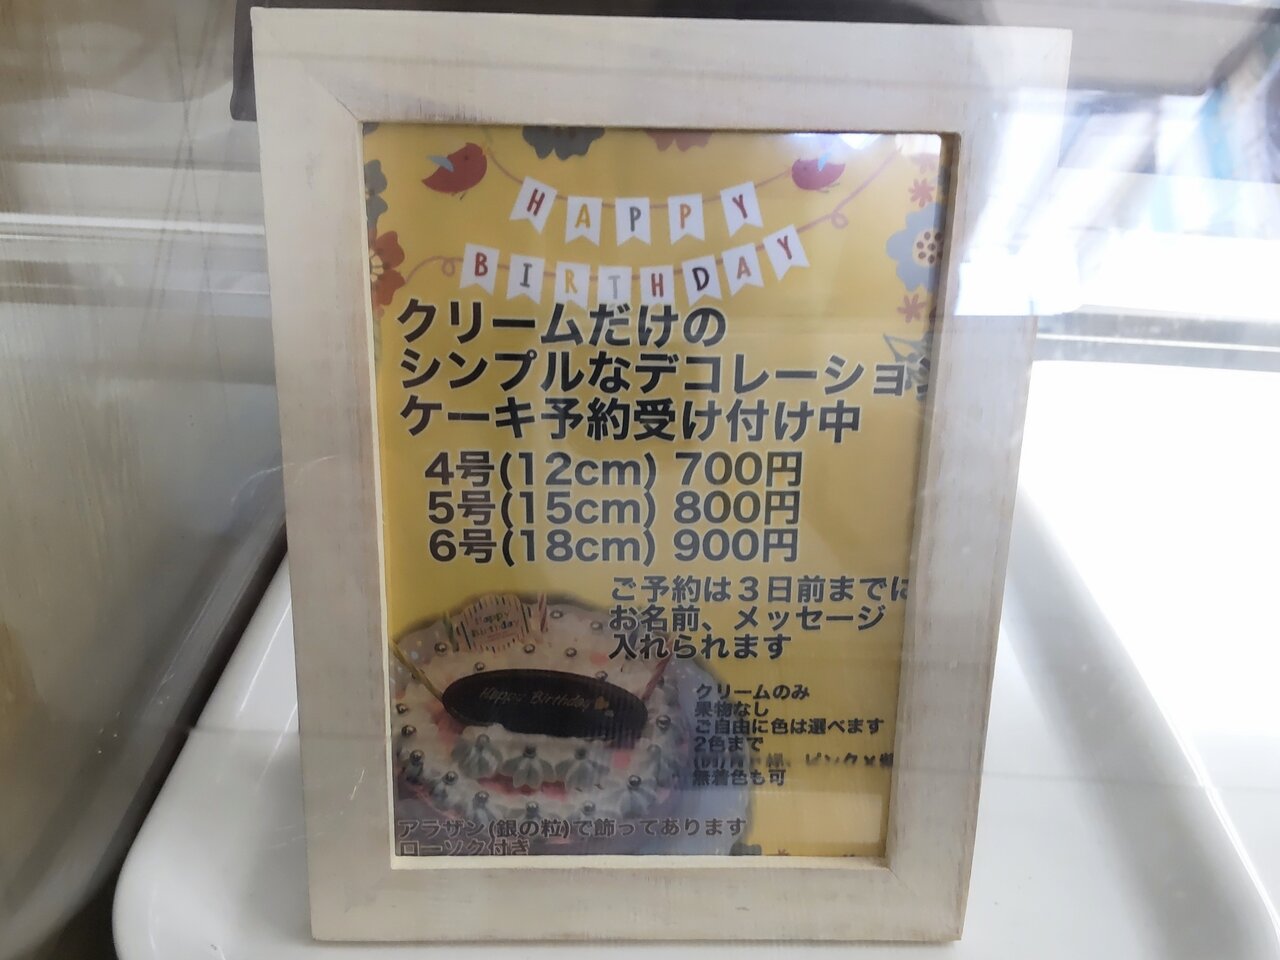 HAPPY
BIRTHDAY
クリームだけの
シンプルなデコレーション
ケーキ予約受け付け中
4号(12cm) 700円
5号(15cm) 800円
6号(18cm) 900円
ご予約は３日前までに
お名前、メッセージ
入れられます
Happy
Birthday
Happy Birthday
クリームのみ
果物なし
ご自由に色は選べます
2色まで
ピンク×
無着色も可
アラザン(銀の粒)で飾ってあります
ローソク付き